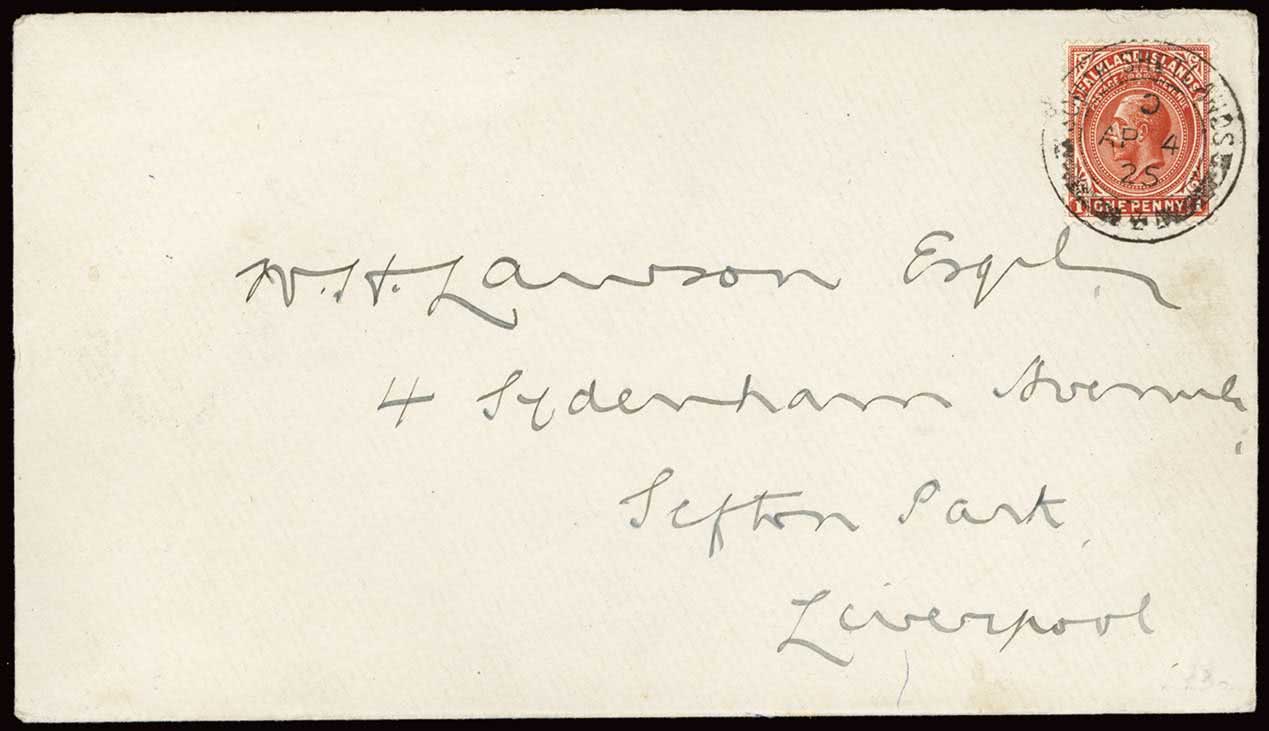 FALKLAND ISLANDS
POSTAGE REVENUE
ONE PENNY
AP 4
25
W. H. Lawson Esqr
4 Sydenham Avenue
Sefton Park
Liverpool